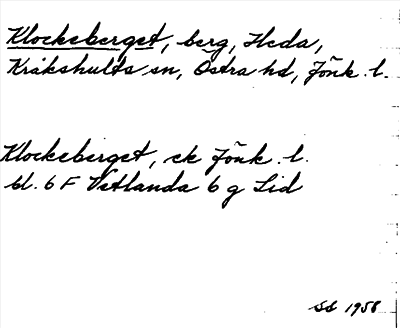 Klockeberget, berg, Heda,
Kråkshults sn, Östra hd, Jönk. l.
Klockeberget, ek Jönk. l.
bl. 6 F Vetlanda 6 g Lid
SS 1958